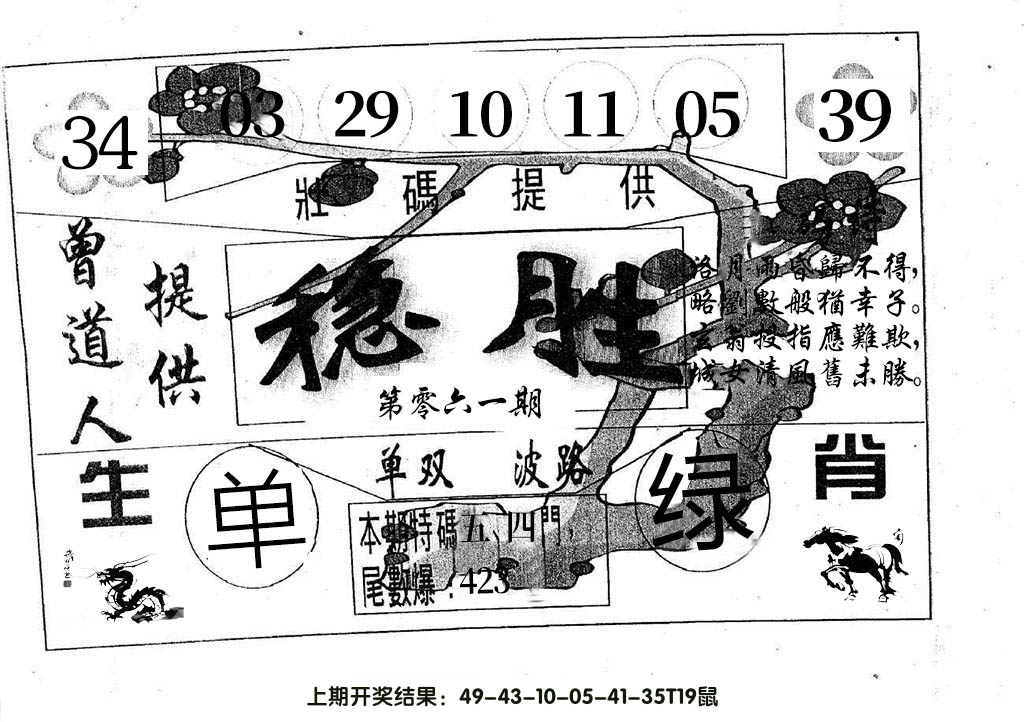 34
03 29 10 11 05
39
壯碼提供
曾道人
提供
稳胜
第零六一期
洛月雨昏歸不得，
略劉數般猶幸子。
玄翁投指應難欺，
城女清風舊未勝。
单双 波路
生肖
单
绿
本期特碼五、四門，
尾數爆：423
上期开奖结果：49-43-10-05-41-35T19鼠